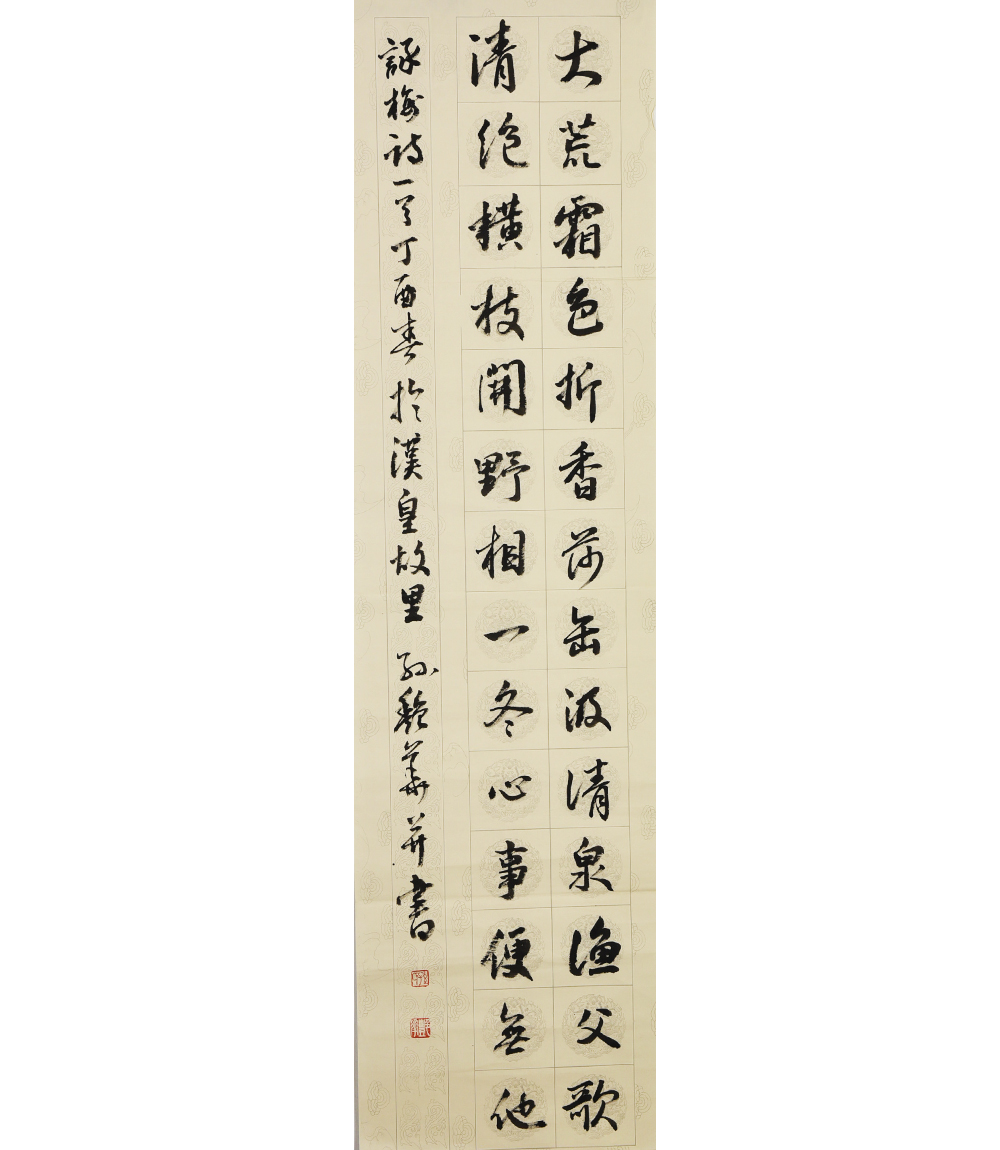 大荒霜色折香莎缶汲清泉漁父歌
清絶橫枝開野相一冬心事便無他
詠梅詩一首丁酉春於漢皇故里 孫艷華并書